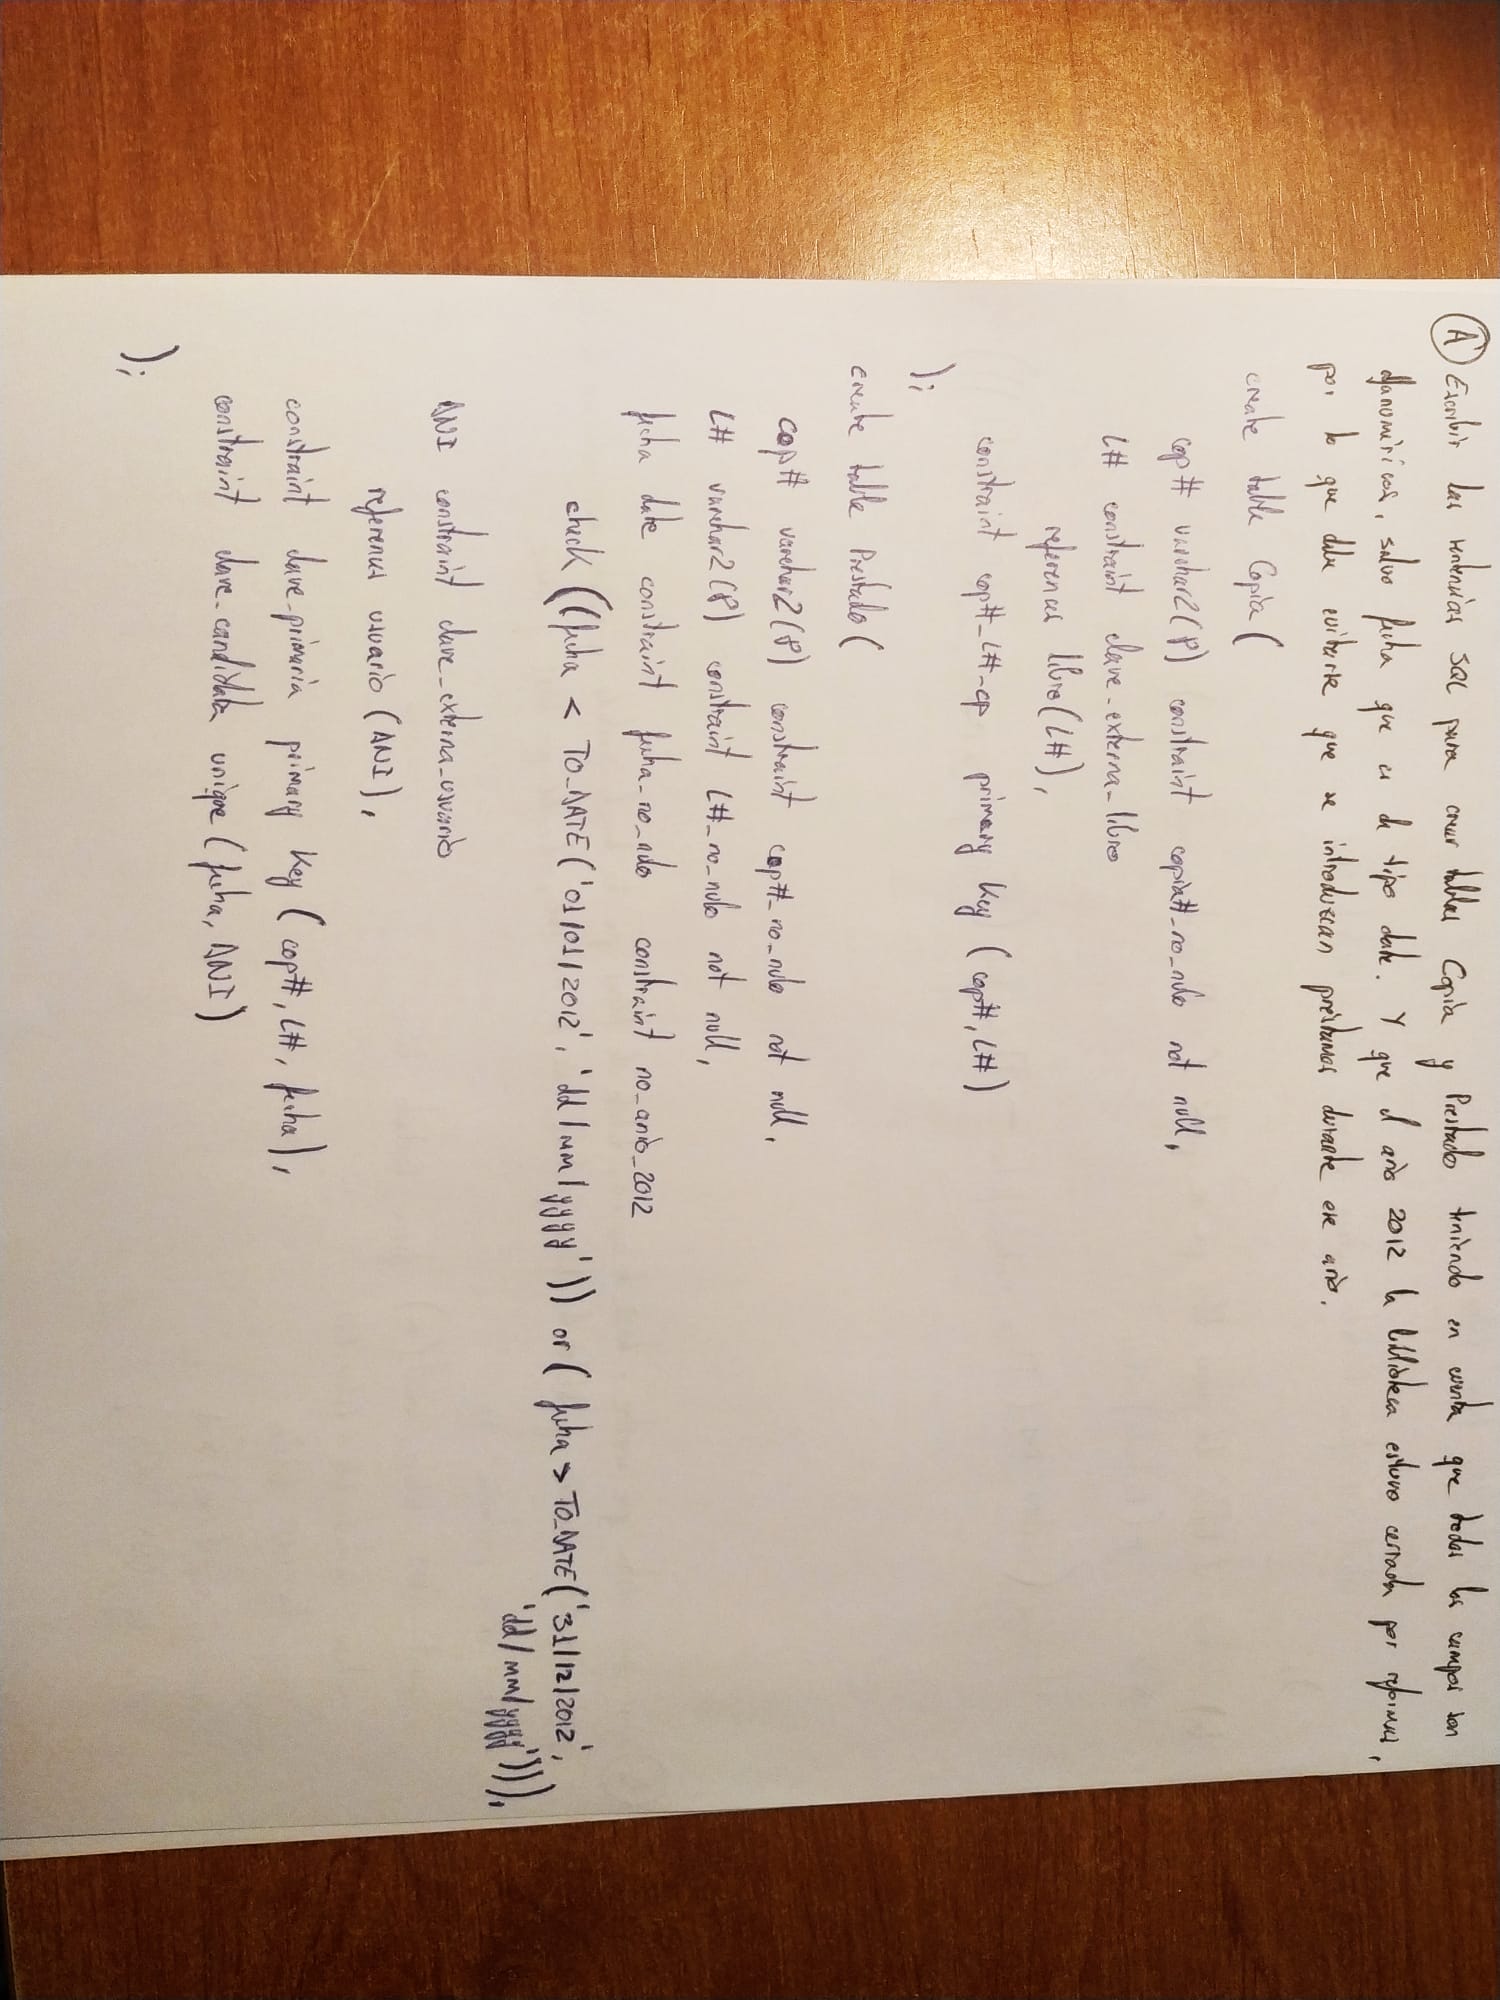 A Escribir las sentencias SQL para crear tablas Copia y Prestado teniendo en cuenta que todos los campos son
alfanuméricos, salvo fecha que es de tipo date. Y que el año 2012 la biblioteca estuvo cerrada por reformas,
por lo que debe evitarse que se introduzcan préstamos durante ese año.
create table Copia (
cop# varchar2(8) constraint copia#_no_nulo not null,
L# constraint clave_externa_libro
references libro(L#),
constraint cop#_L#_cp primary key (cop#, L#)
);
create table Prestado (
cop# varchar2(8) constraint cop#_no_nulo not null,
L# varchar2(8) constraint L#_no_nulo not null,
fecha date constraint fecha_no_nulo constraint no_año_2012
check ((fecha < TO_DATE('01/01/2012', 'dd/mm/yyyy')) or (fecha > TO_DATE('31/12/2012',
'dd/mm/yyyy'))),
DNI constraint clave_externa_usuario
references usuario (DNI),
constraint clave_primaria primary key (cop#, L#, fecha),
constraint clave_candidata unique (fecha, DNI)
);